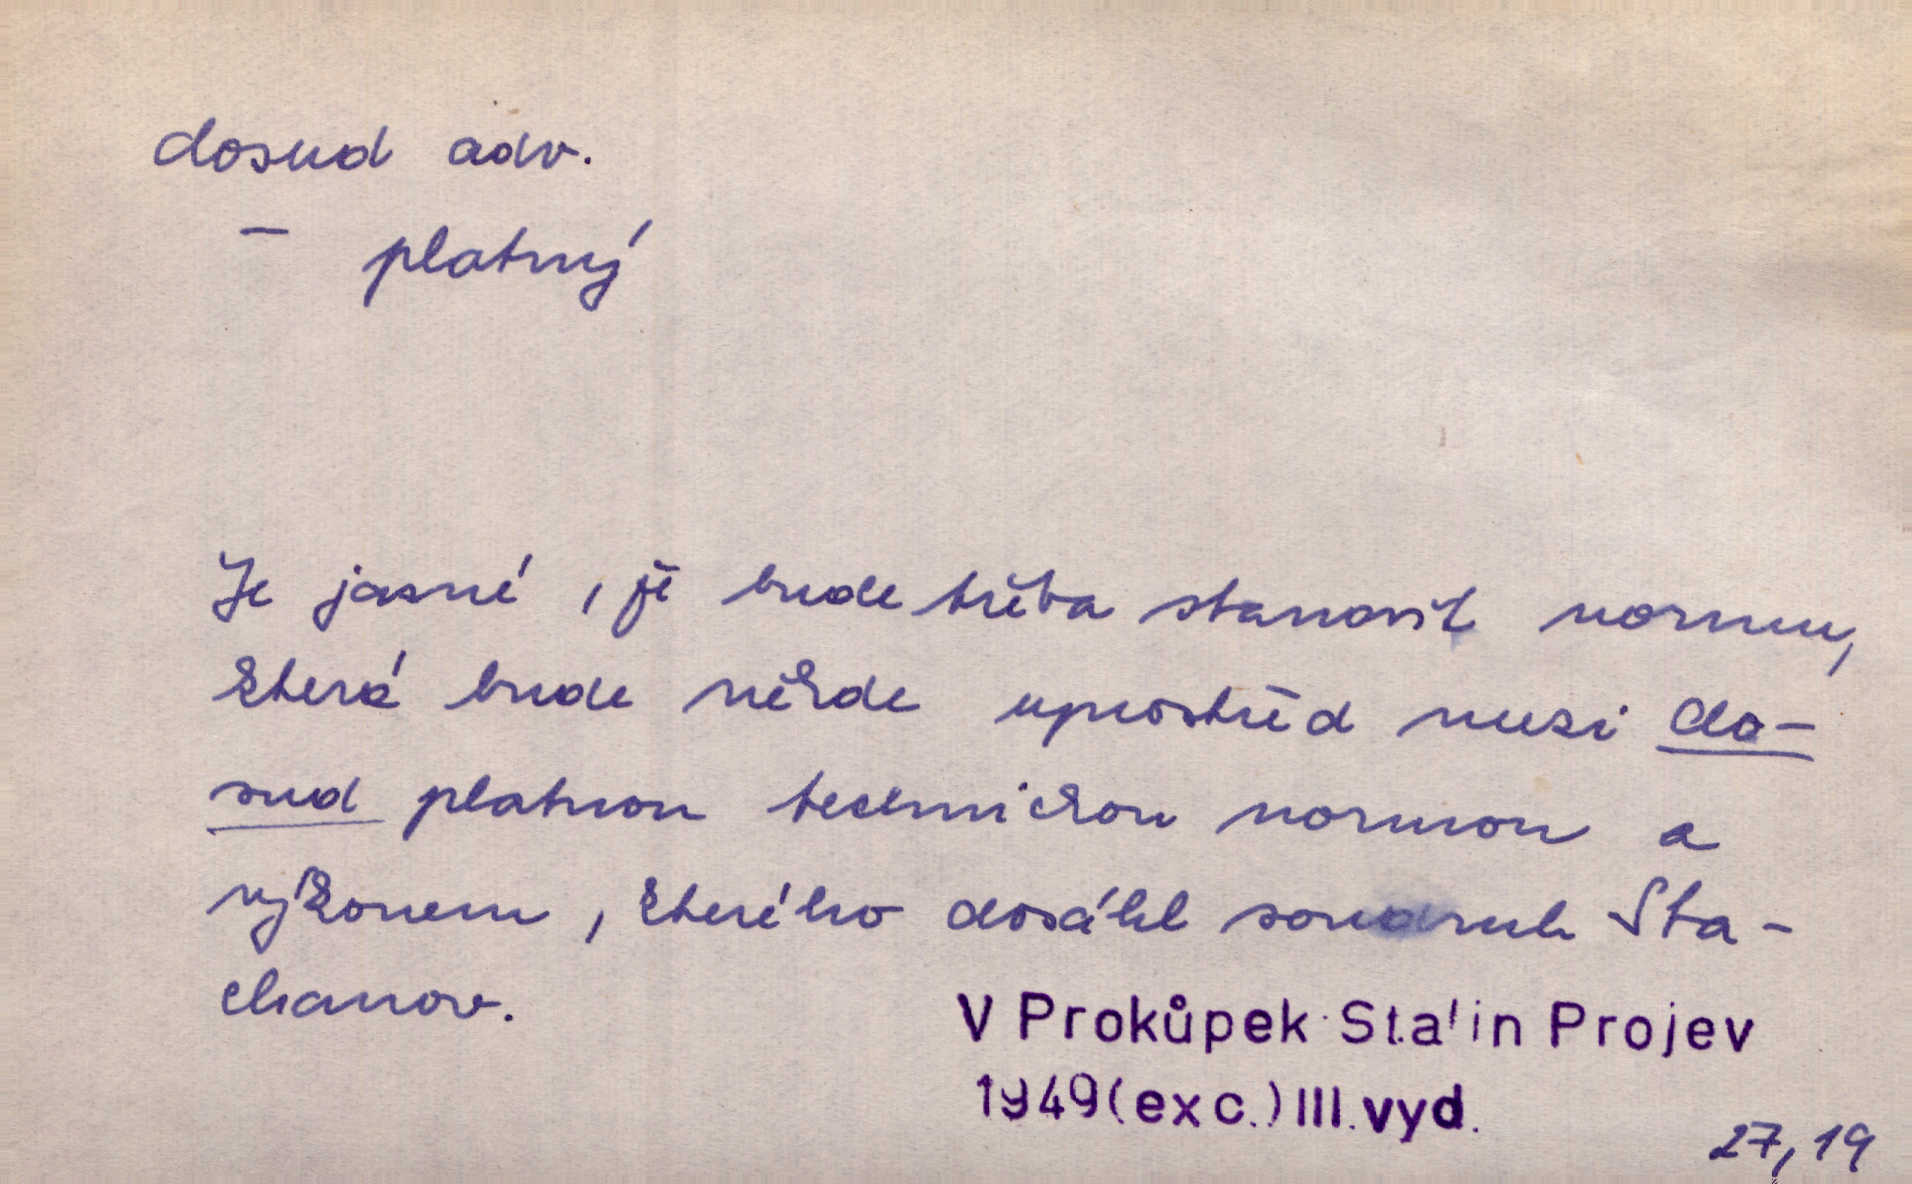 dosud adv.
– platný
Je jasné, že bude třeba stanovit normu,
která bude někde uprostřed mezi do-
sud platnou technickou normou a
výkonem, kterého dosáhl soudruh Sta-
chanov.
V Prokůpek Stalin Projev
1949(exc.) III. vyd.
27, 19